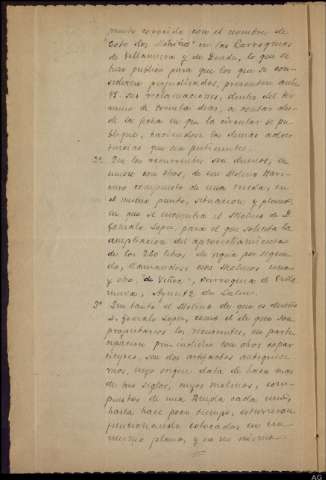 puesto conocido con el nombre de
"Coto dos Molinos" en las Parroquias
de Villanueva y de Donda, lo que se
hizo publico para que los que se con-
sideren perjudicados, presenten ante
V.S. sus reclamaciones, dentro del tér-
mino de treinta dias, a contar des-
de la fecha en que la circular se pu-
blique, haciendose las demas adver-
tencias que son pertinentes.
2º Que los recurrentes son dueños, en
union con otros, de un Molino Hari-
nero compuesto de una rueda, en
el mismo punto, situacion y planos,
en que se encuentra el Molino de D.
Gonzalo Lopez, para el que solicita la
ampliacion del aprovechamiento
de los 260 litros de agua por segun-
do, llamandose esos Molinos unos
y otro "de Viña", parroquia de
Ayunt.º de Lalin.
3º Que tanto el Molino de que es dueño
D. Gonzalo Lopez, como el de que son
propietarios los recurrentes, en parti-
cipacion pro indiviso con otros copar-
tícipes, son dos artefactos antiquisi-
mos, cuyo origen data de hace mas
de tres siglos, cuyos molinos, com-
puestos de una Rueda cada uno,
hasta hace poco tiempo, estuvieron
funcionando colocados en un
mismo plano, y en un mismo